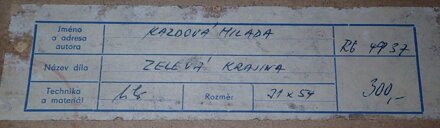 Jméno
a adresa
autora
KAZDOVÁ MILADA
Název díla
ZELEVÁ KRAJINA
Technika
a materiál
Rozměr
71 x 54
300,-